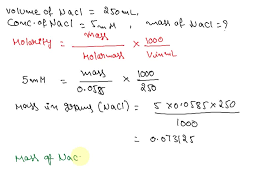 volume of NaCl = 250 mL.
Conc. of NaCl = 5 mM , mass of NaCl = ?
Molarity = mass / Molar mass × 1000 / V in mL
5 mM = mass / 0.0585 × 1000 / 250
Mass in grams (NaCl) = 5 × 0.0585 × 250 / 1000
= 0.073125
Mass of Nac